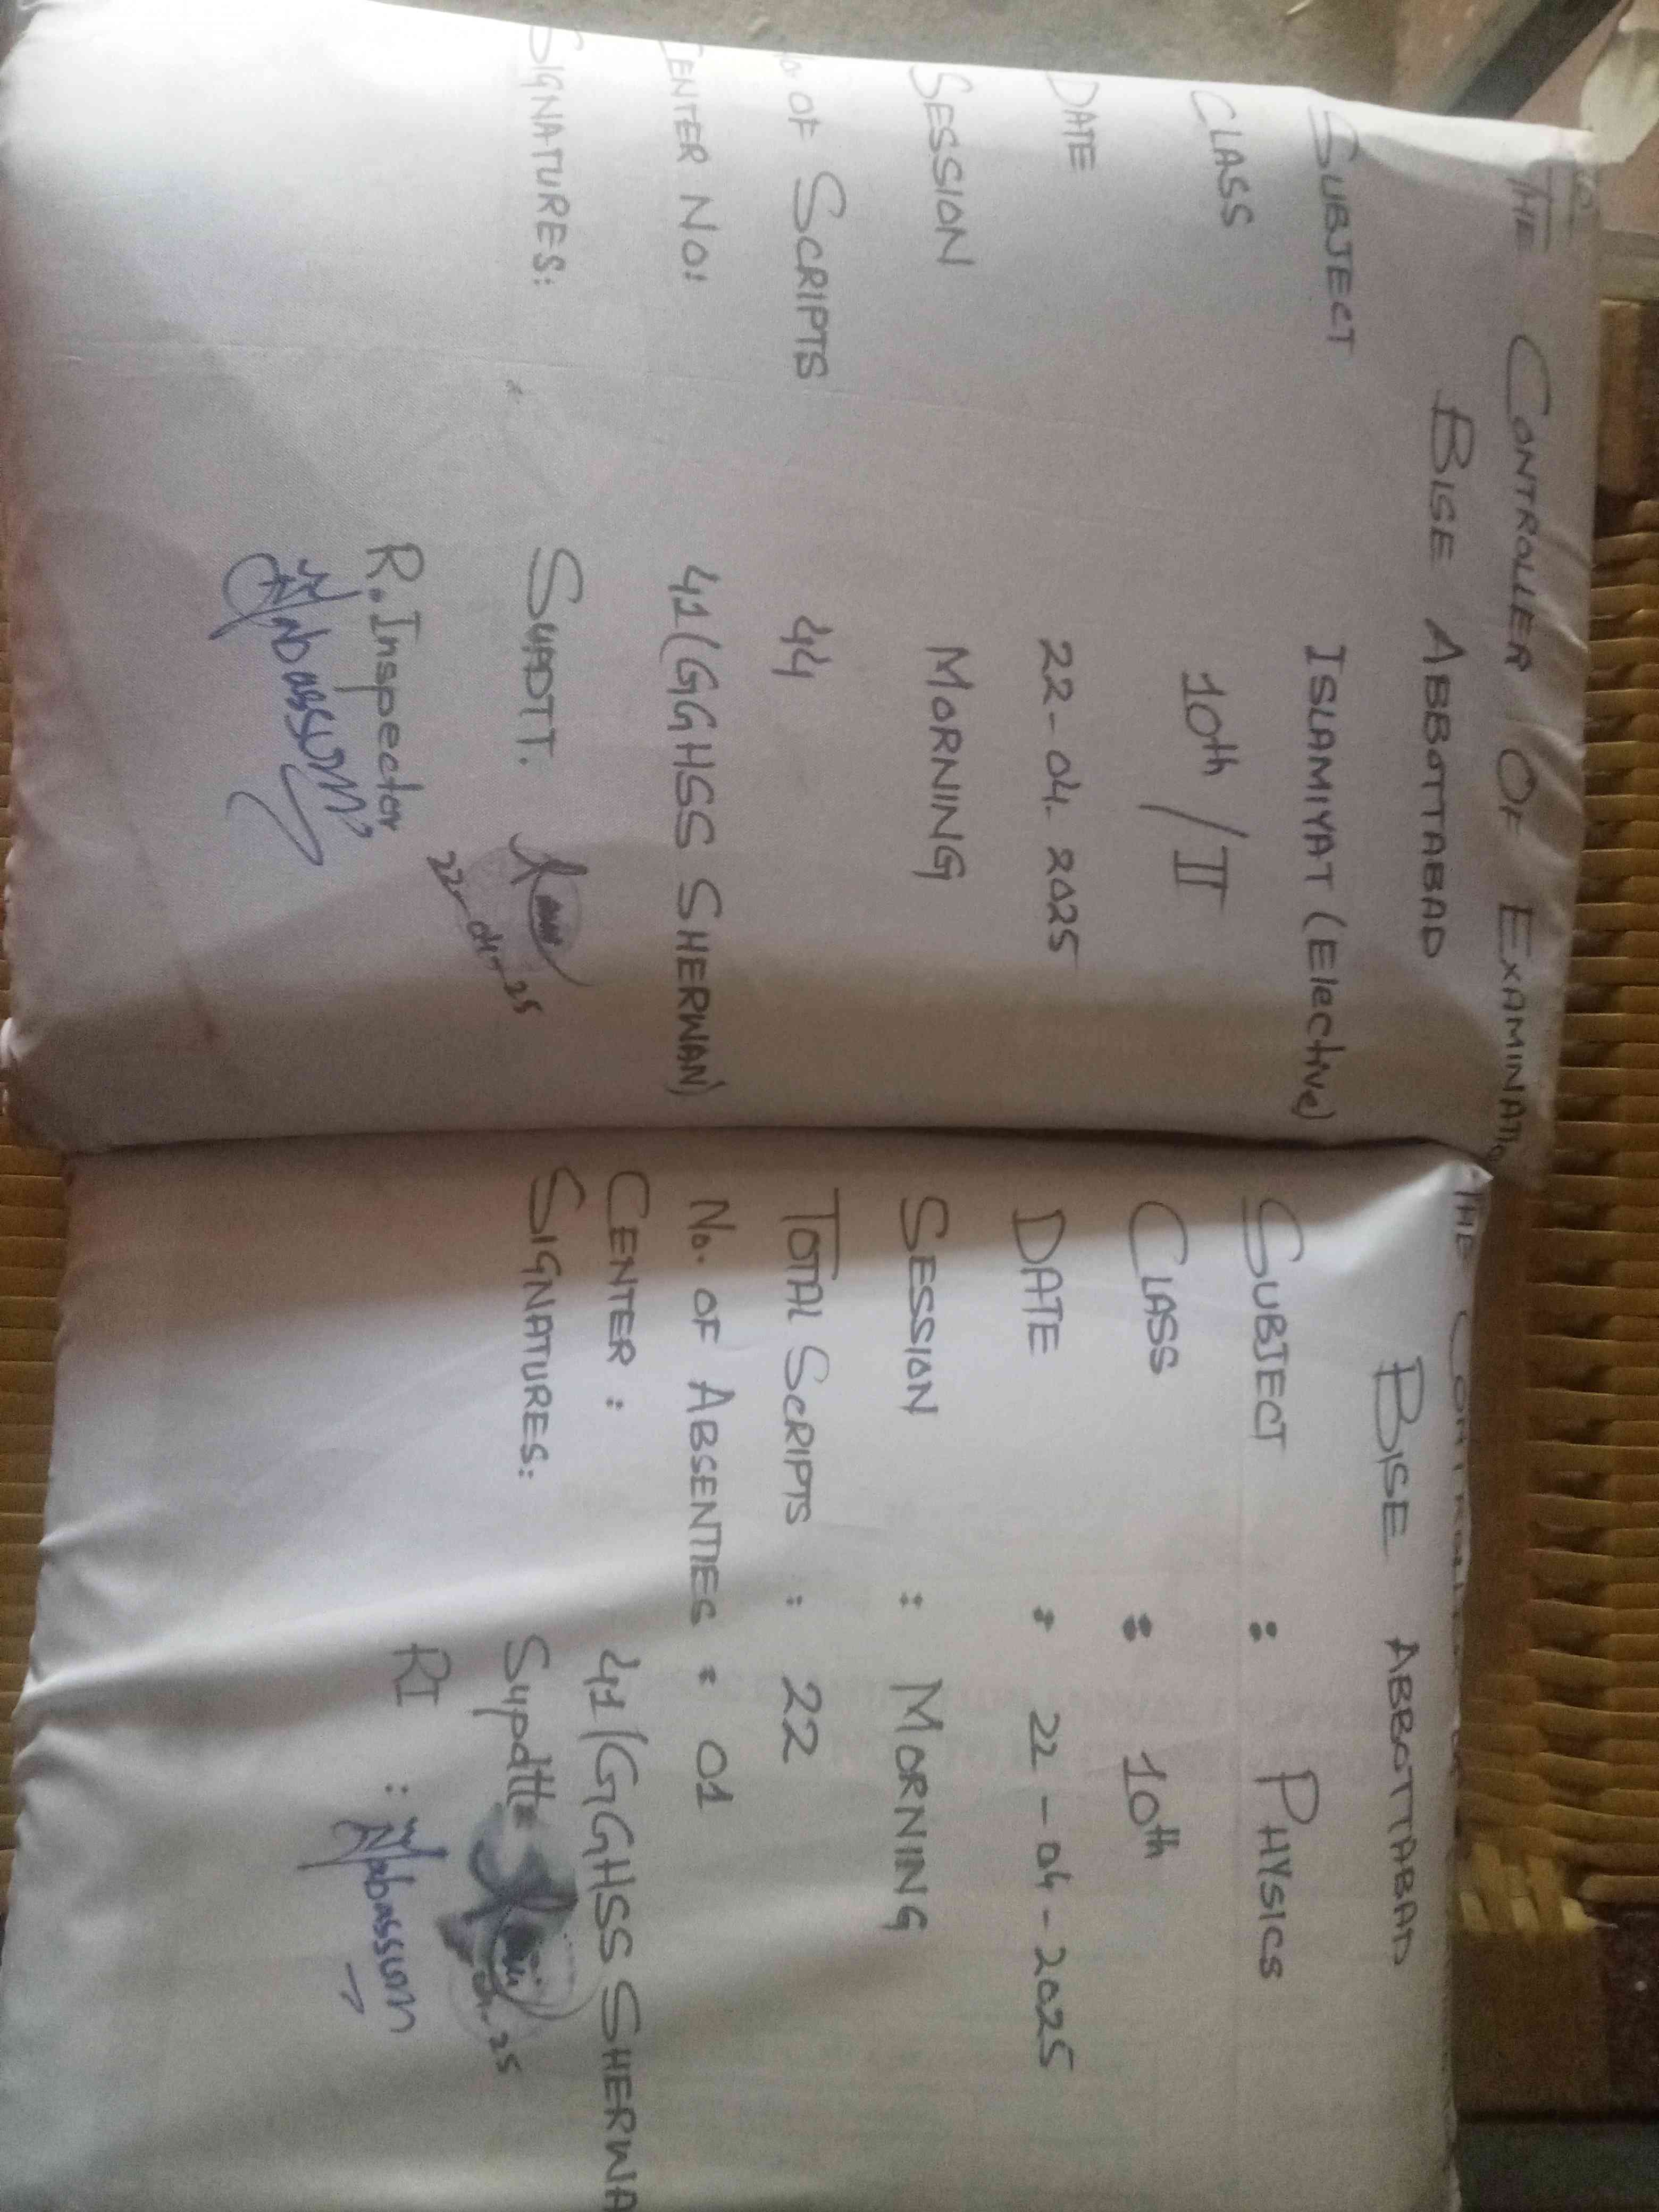 THE CONTROLLER OF EXAMINATIO
BISE ABBOTTABAD
SUBJECT ISLAMIYAT (Elective)
CLASS 10th / II
DATE 22-04-2025
SESSION MORNING
No. OF SCRIPTS 44
CENTER NO: 41(GGHSS SHERWAN)
SIGNATURES: SUPDTT.
22-04-25
R. Inspector
Tabassum
THE CONTROLLER
BISE ABBOTTABAD
SUBJECT : PHYSICS
CLASS : 10th
DATE : 22-04-2025
SESSION : MORNING
TOTAL SCRIPTS : 22
NO. OF ABSENTIES : 01
CENTER : 41(GGHSS SHERWA
SIGNATURES: Supdtt:
04-25
RI : Tabassum